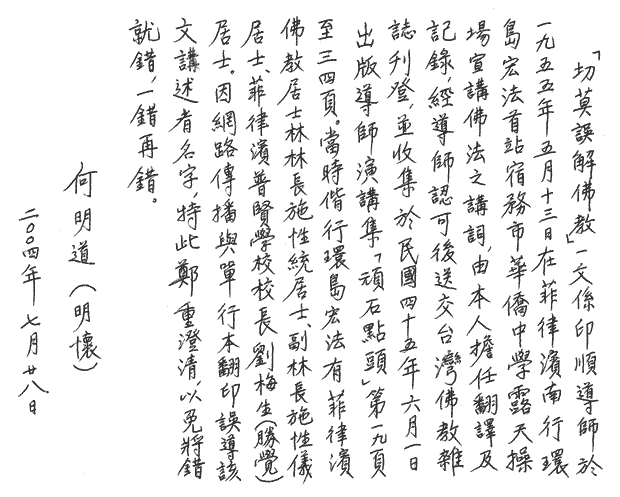 「切莫誤解佛教」一文係印順導師於
一九五五年五月十三日在菲律濱南行環
島宏法首站宿務市華僑中學露天操
場宣講佛法之講詞，由本人擔任翻譯及
記錄，經導師認可後送交台灣佛教雜
誌刊登，並收集於民國四十五年六月一日
出版導師演講集「頑石點頭」第一九頁
至三四頁。當時偕行環島宏法有菲律濱
佛教居士林林長施性統居士、副林長施性儀
居士、菲律濱普賢學校校長劉梅生(勝覺)
居士。因網路傳播與單行本翻印誤導該
文講述者名字，特此鄭重澄清，以免將錯
就錯，一錯再錯。
何明道(明懷)
二〇〇四年七月廿八日